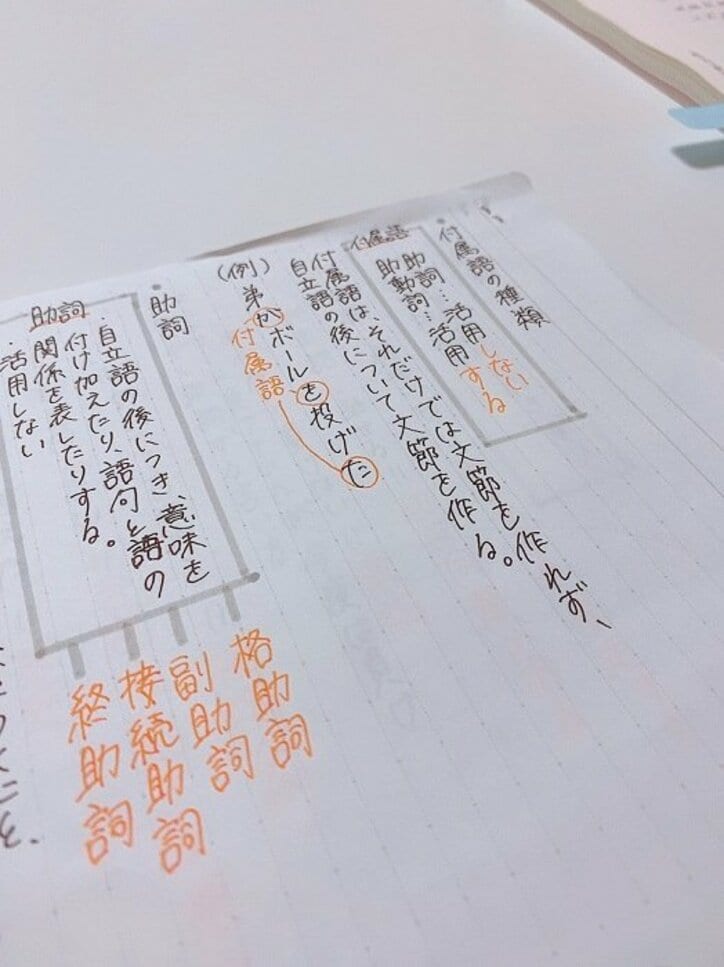 ・付属語の種類
助詞…活用しない
助動詞…活用する
付属語
付属語は、それだけでは文節を作れず、
自立語の後について文節を作る。
(例)
弟がボールを投げた
付属語
・助詞
助詞
・自立語の後につき、意味を
付け加えたり、語句と語の
関係を表したりする。
・活用しない
格助詞
副助詞
接続助詞
終助詞